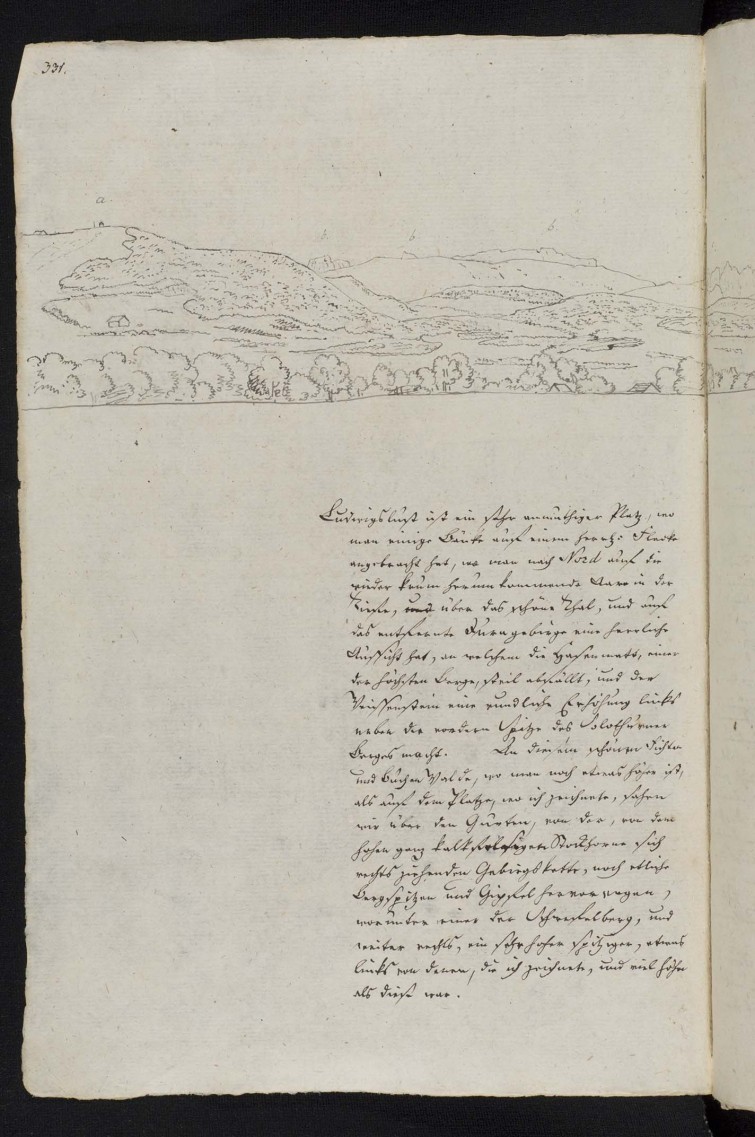 331.
a
b
b
b
Ludwigslust ist ein sehr anmuthiger Platz, wo
man einige Bänke auf einem Flecke
angebracht hat, wo man nach Nord auf die
wieder krum herumkommende Aare in der
Tiefe, und über das schöne Thal, und auf
das entfernte Juragebirge eine herrliche
Aussicht hat, an welchem die Hasenmatt, einer
der höchsten Berge, steil abfällt, und der
Weissenstein eine rundliche Erhöhung links
neben die vordere Spitze des Solothurner
Berges macht. An diesem schönen Fichten
und Buchen Walde, wo man noch etwas höher ist,
als auf dem Platze, wo ich zeichnete, sahen
wir über den Gurten, von der, von dem
hohen ganz kalkfelsigen Stockhorne sich
rechts ziehenden Gebirgskette, noch etliche
Bergspitzen und Gipfel hervorragen,
worunter einer der Schreckelberg, und
weiter rechts, ein sehr hoher spitziger, etwas
links von denen, die ich zeichnete, und viel höher
als diese war.